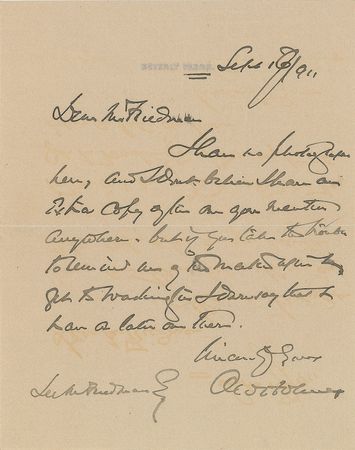 Sept 16/911
Dear Mr Friedman
I have no photographs
here, and I don't believe I have an
extra copy of the one you mention
anywhere. but if you take the trouble
to remind me of the matter after I
get to Washington I daresay that I
have a later one there.
Sincerely Yours
O W Holmes
Lee M Friedman Esq